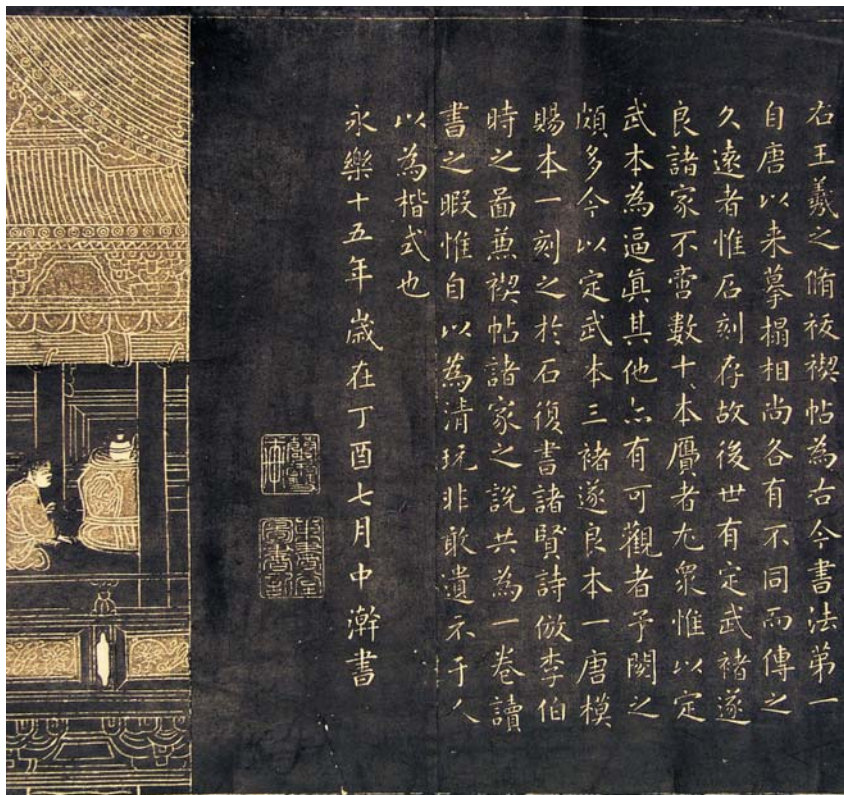 右王羲之脩祓禊帖為古今書法第一
自唐以来摹搨相尚各有不同而傳之
久遠者惟石刻存故後世有定武褚遂
良諸家不啻數十本贋者尤衆惟以定
武本為逼真其他亦有可觀者予閱之
頗多今以定武本三褚遂良本一唐模
賜本一刻之於石復書諸賢詩倣李伯
時之圖兼禊帖諸家之說共為一卷讀
書之暇惟自以為清玩非敢遺示于人
以為楷式也
永樂十五年歲在丁酉七月中澣書